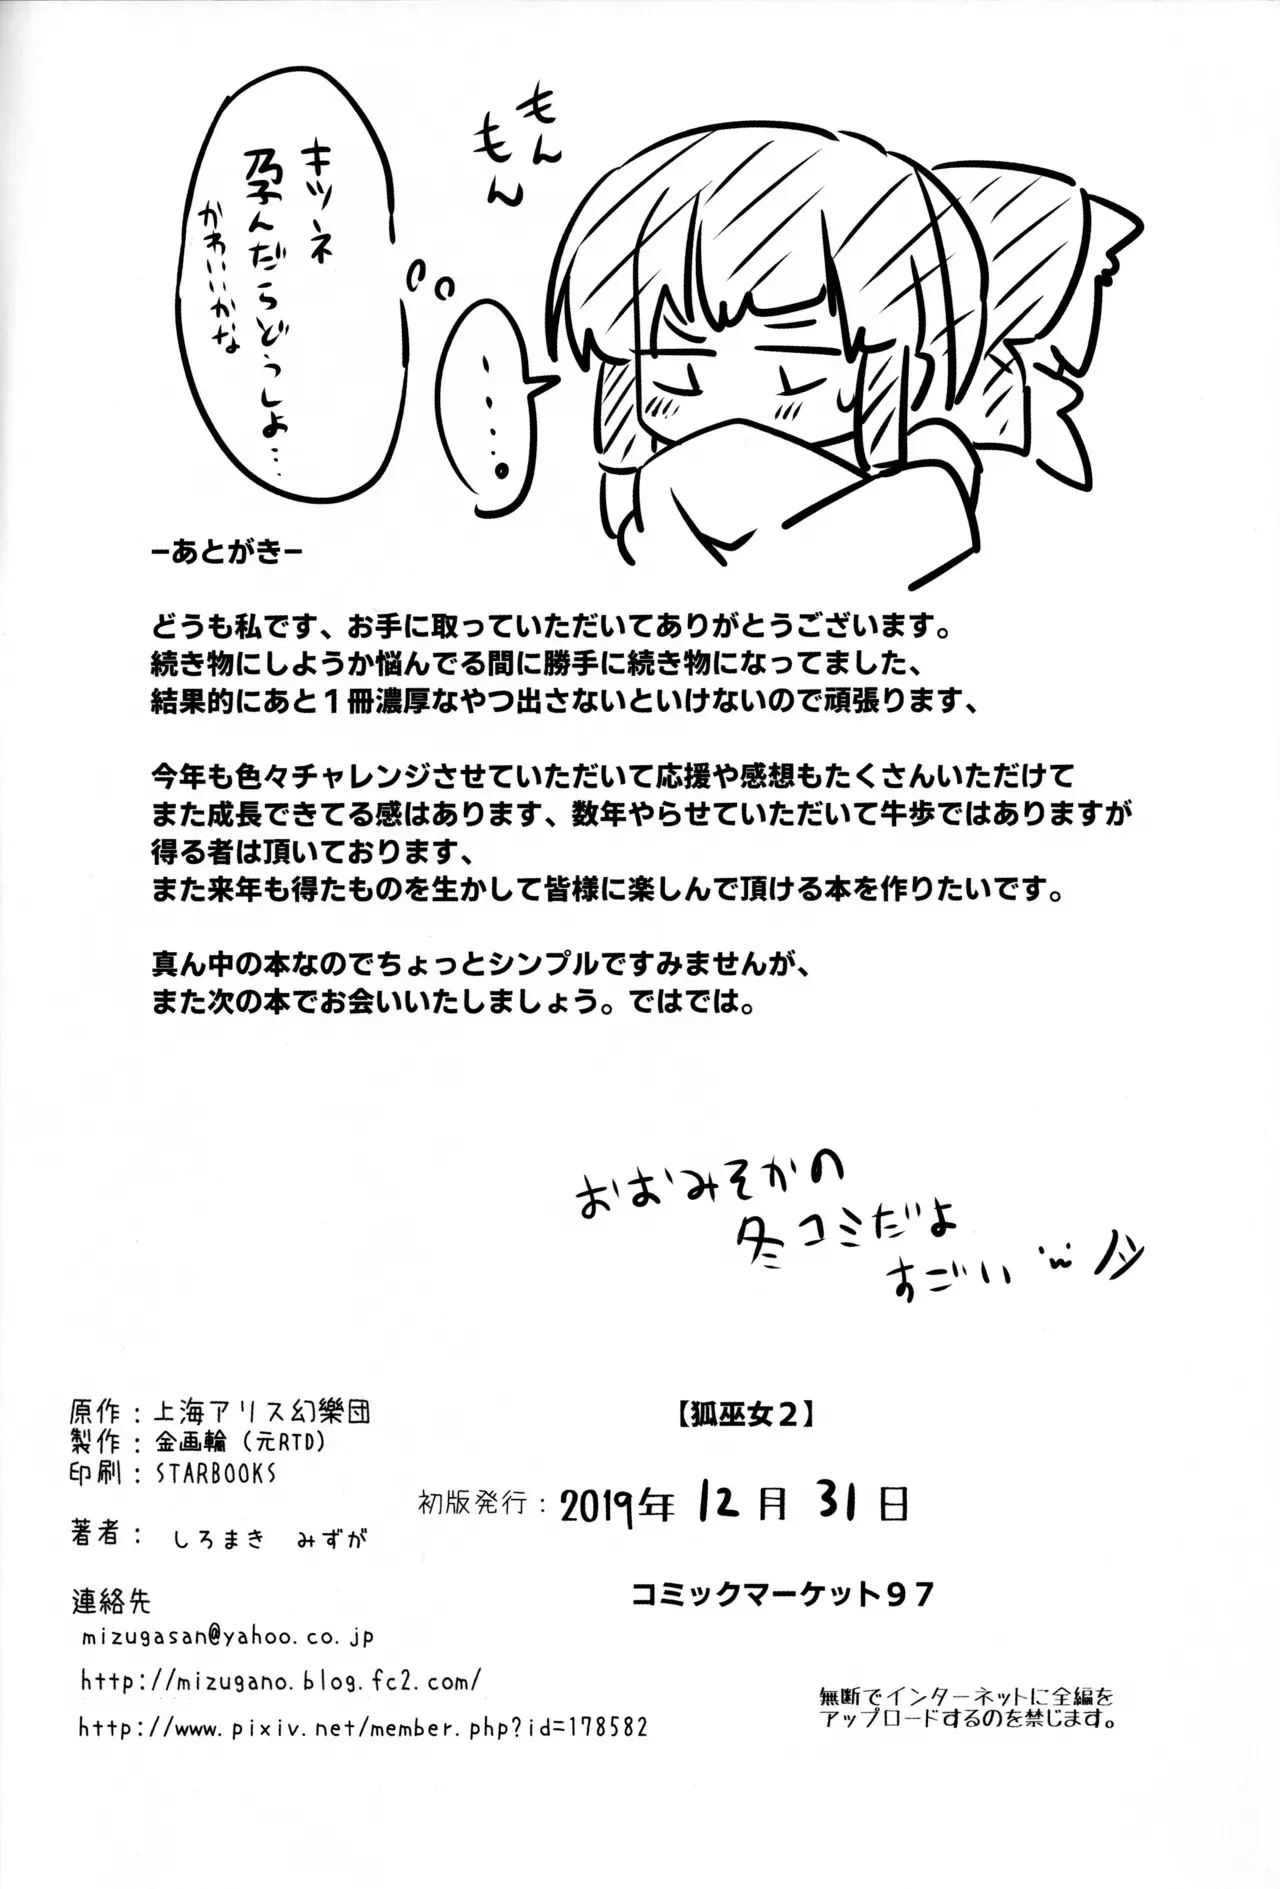 もん
もん
キツネ
孕んだらどうしよ…
かわいいかな
‥‥。
ーあとがきー
どうも私です、お手に取っていただいてありがとうございます。
続き物にしようか悩んでる間に勝手に続き物になってました、
結果的にあと１冊濃厚なやつ出さないといけないので頑張ります、
今年も色々チャレンジさせていただいて応援や感想もたくさんいただけて
また成長できてる感はあります、数年やらせていただいて牛歩ではありますが
得る者は頂いております、
また来年も得たものを生かして皆様に楽しんで頂ける本を作りたいです。
真ん中の本なのでちょっとシンプルですみませんが、
また次の本でお会いいたしましょう。ではでは。
おおみそかの
冬コミだよ
すごい
原作：上海アリス幻樂団
製作：金画輪（元RTD）
印刷：STARBOOKS
著者：しろまき みずが
連絡先
mizugasan@yahoo.co.jp
http://mizugano.blog.fc2.com/
http://www.pixiv.net/member.php?id=178582
【狐巫女２】
初版発行：2019年 12月 31日
コミックマーケット９７
無断でインターネットに全編を
アップロードするのを禁じます。